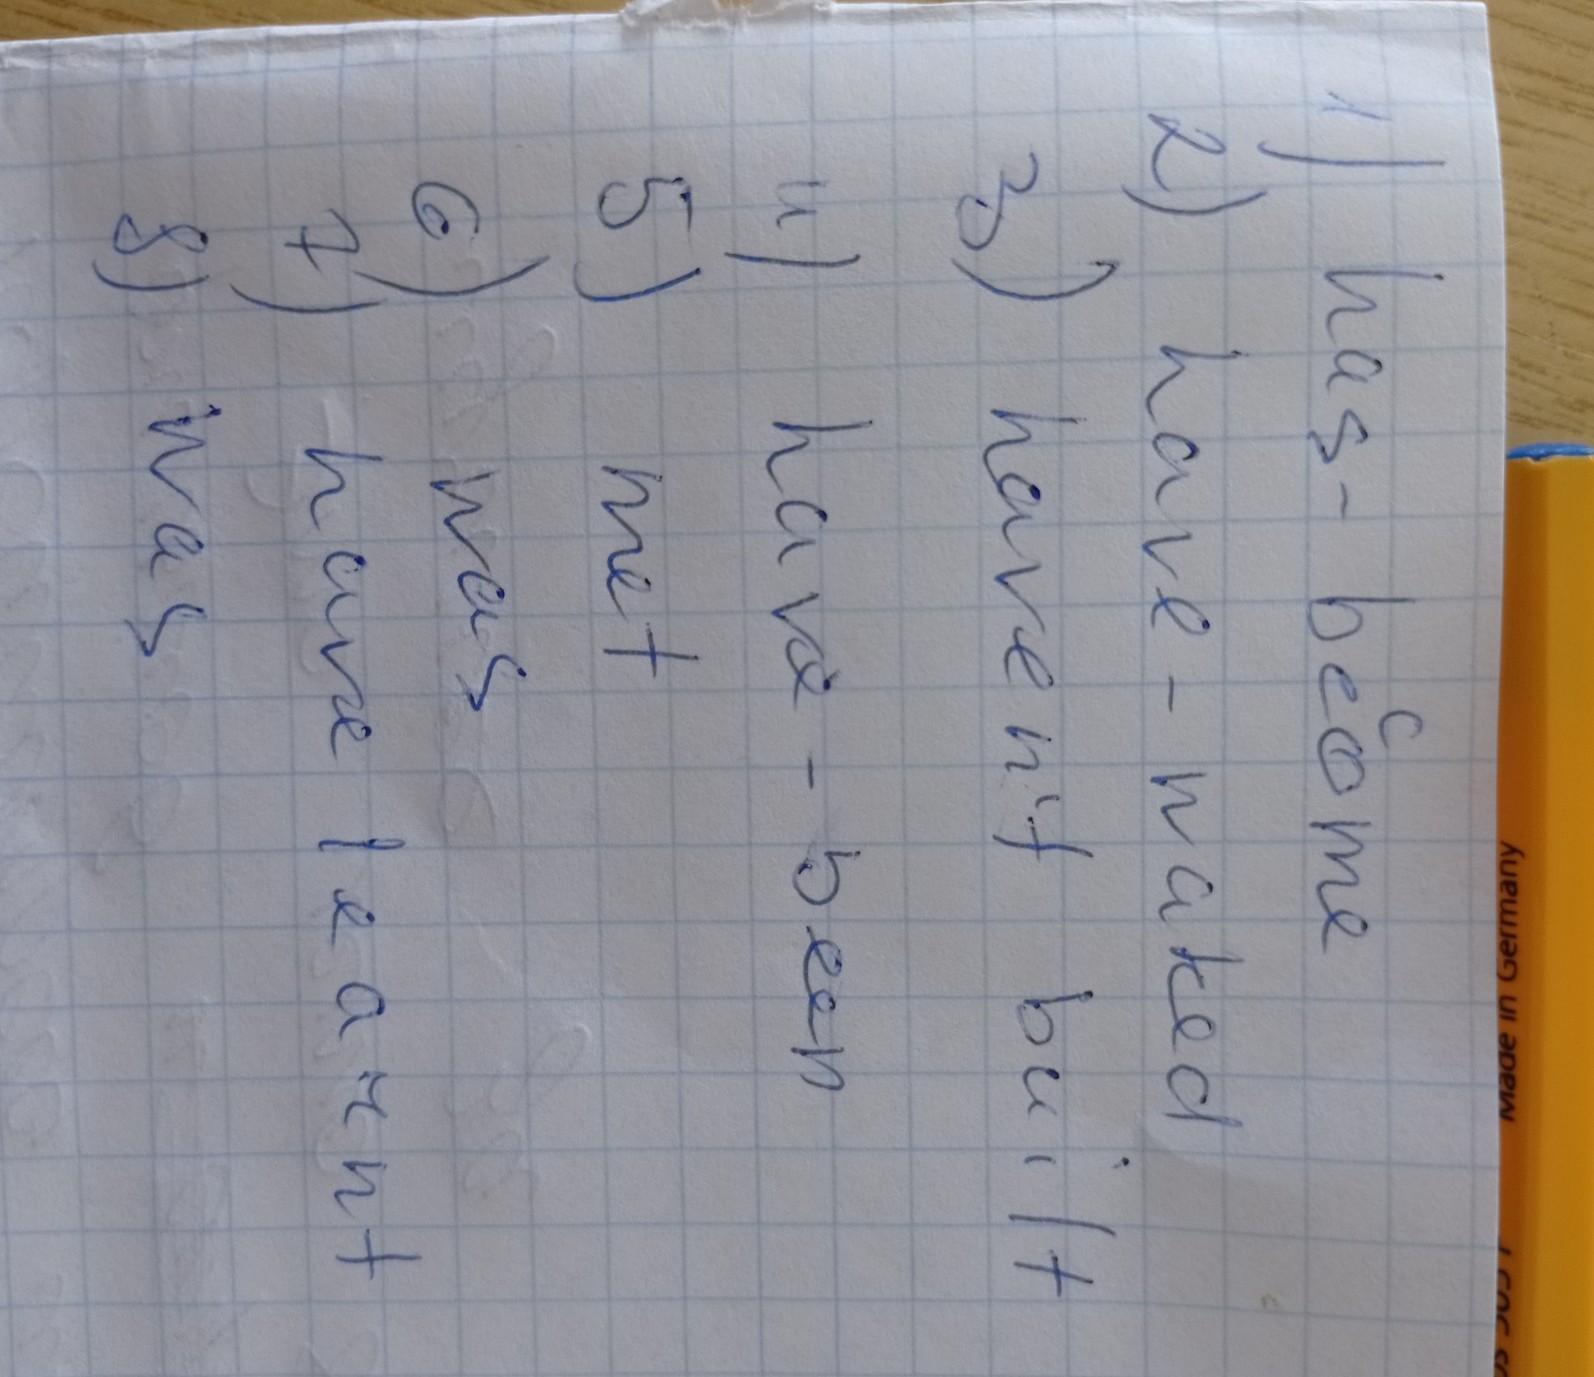 1) has- become
2) have -
3) haven't built
4) have - been
5) met
6) was
7) have learnt
8) was
Made in Germany